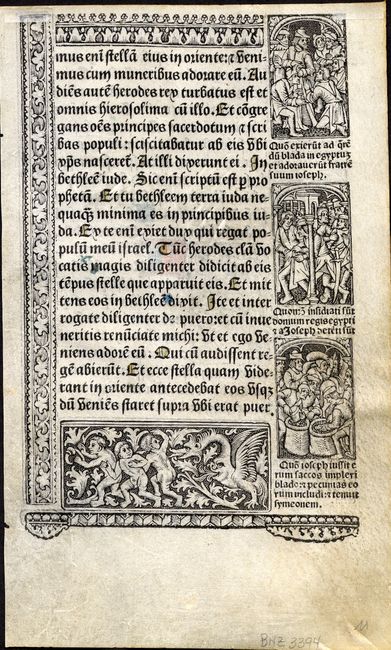 mus em̄ stellā eius in oriente: ⁊ veni⸗
mus cum muneribus adorare eū. Au
diēs autē herodes rex turbatus est et
omnis hierosolima cū illo. Et cōgre
gans oēs principes sacerdotum ⁊ scri
bas populi: sciscitabatur ab eis vbi
xp̄s nasceret̄. At illi dixerunt ei. In
bethleē iude. Sic em̄ scriptū est p̱ pro
phetā. Et tu bethleem terra iuda ne⸗
quaq̄ȝ minima es in principibus iu⸗
da. Ex te em̄ exiet dux qui regat po⸗
pulū meū israel. Tūc herodes clā vo
catis magis diligenter didicit ab eis
tēpus stelle que apparuit eis. Et mit
tens eos in bethleē dixit. Ite et inter
rogate diligenter de puero: et cū inue
neritis renūciate michi: vt et ego ve⸗
niens adorē eū. Qui cū audissent re⸗
gē abierūt. Et ecce stella quam vide⸗
rant in oriente antecedebat eos vsqȝ
dū veniēs staret supra vbi erat puer.
Quō exierūt ad q̄rē
dū blada in egyptuȝ
et adorauerūt fratrē
suum ioseph.
Quom̄ insidiati sūt
domum regis egypti
⁊ a Joseph
Quō ioseph iussit e
rum saccos impleri
blado: ⁊ pecunias eo
rum includi: ⁊ tenuit
symeonem.
BNZ 3394
11